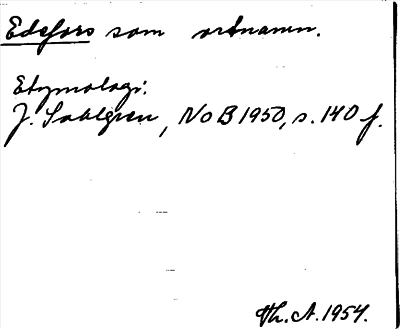 Edefors som ortnamn.
Etymologi.
J. Sahlgren, NoB 1950, s. 140 f.
Th. A. 1954.